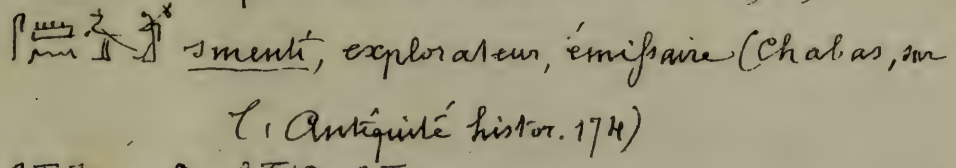 𓋴𓏠𓈖 smenti, explorateur, émissaire (Chabas, sur
l, Antiquité histor. 174)